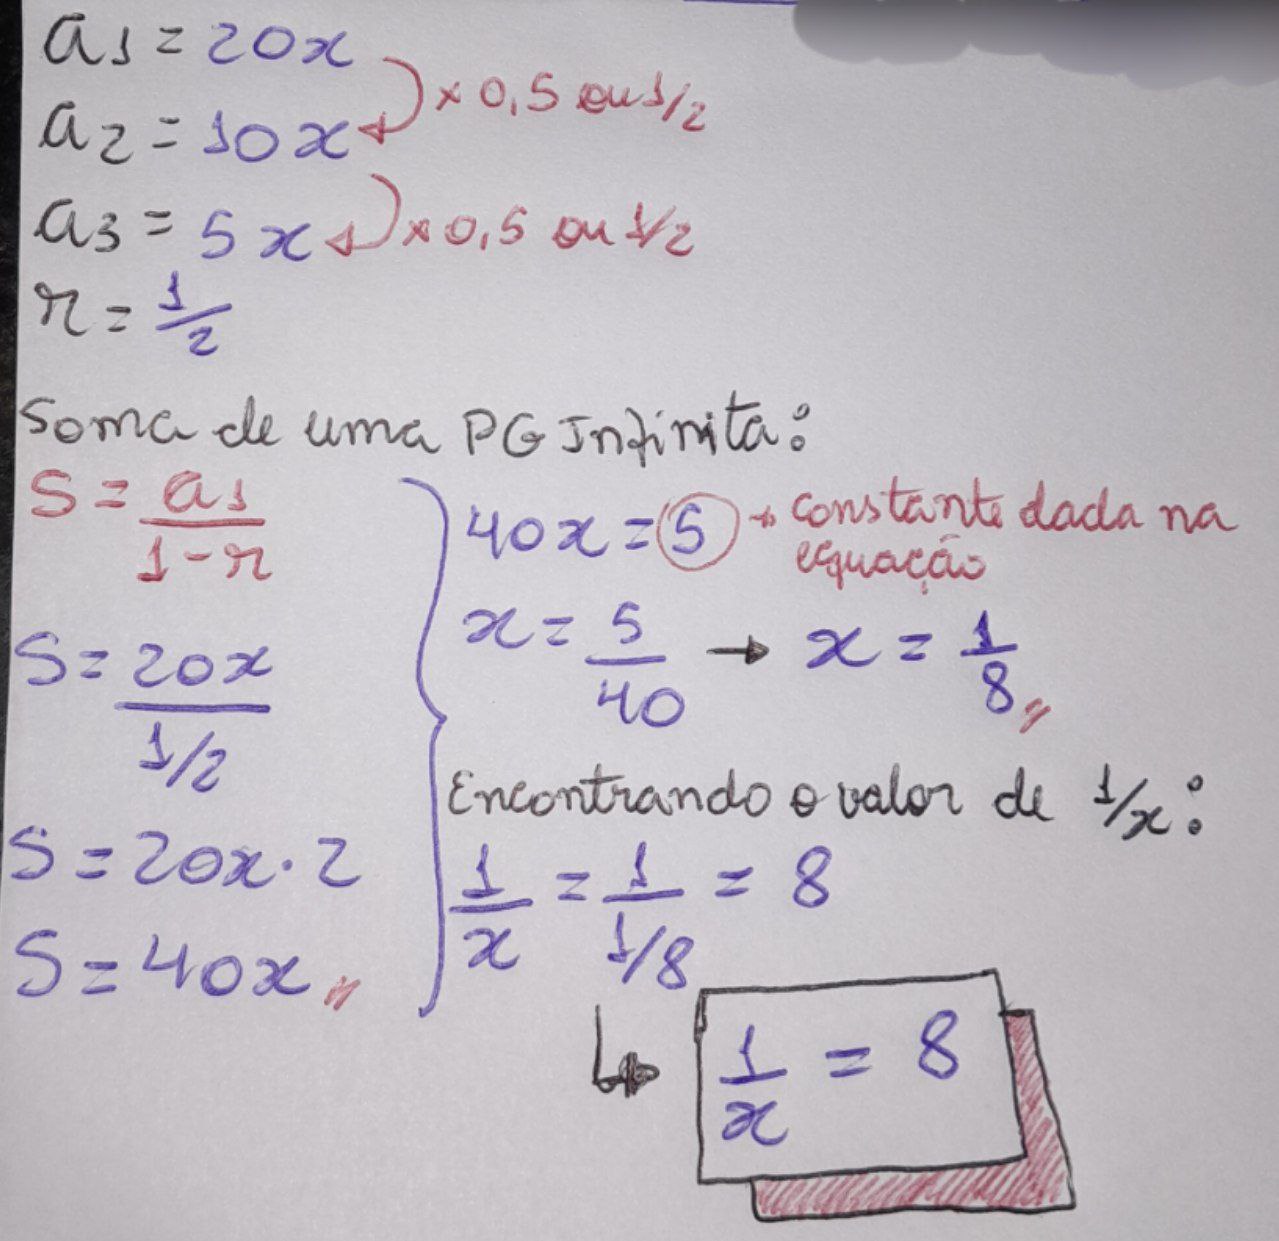 a1 = 20x
× 0,5 ou 1/2
a2 = 10x
a3 = 5x
× 0,5 ou 1/2
r = 1/2
Soma de uma PG Infinita:
S = a1/1-r
S = 20x/1/2
S = 20x·2
S = 40x
40x = 5 → constante dada na
equação
x = 5/40 → x = 1/8
Encontrando o valor de 1/x:
1/x = 1/1/8 = 8
1/x = 8